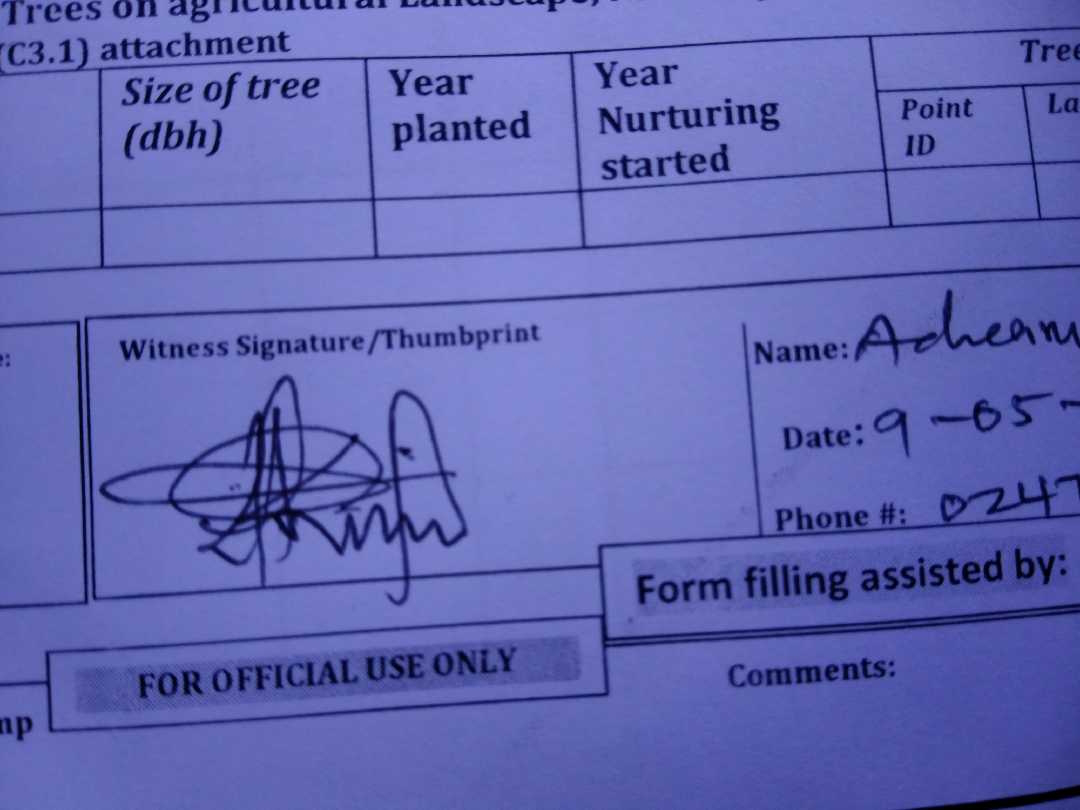 Trees on agricultural Landscape,
(C3.1) attachment
Size of tree (dbh)
Year planted
Year Nurturing started
Tree
Point ID
La
e:
Witness Signature/Thumbprint
Name:
Date: 9-05-
Phone #: 0247
Form filling assisted by:
FOR OFFICIAL USE ONLY
Comments:
mp